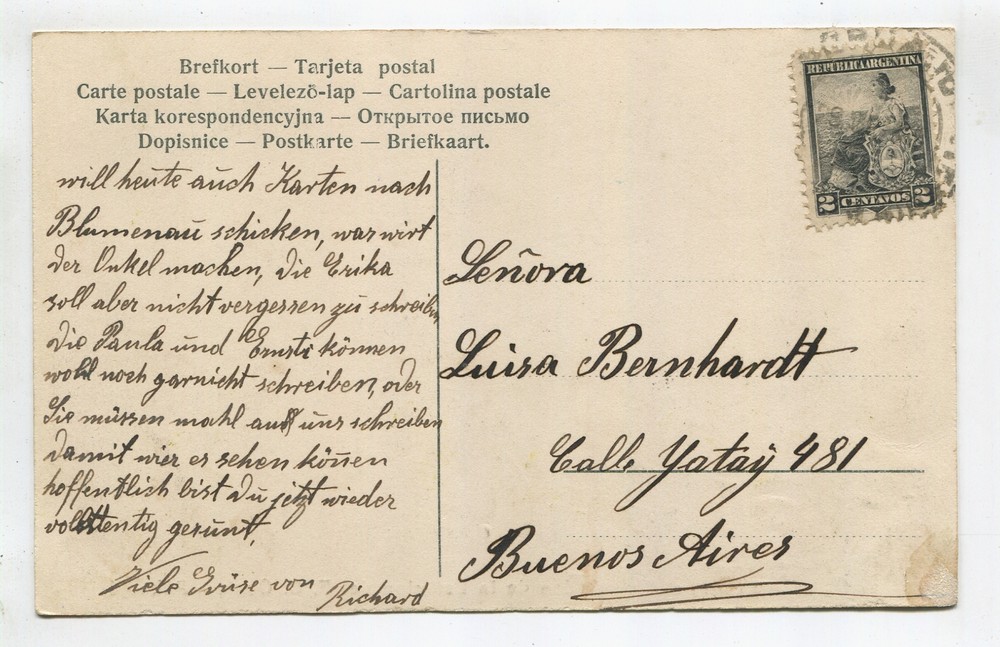 Brefkort — Tarjeta postal
Carte postale — Levelező-lap — Cartolina postale
Karta korespondencyjna — Открытое письмо
Dopisnice — Postkarte — Briefkaart.
REPUBLICA ARGENTINA
2 CENTAVOS 2
will heute auch Karten nach
Blumenau schicken, war wirt
der Onkel machen, die Erika
soll aber nicht vergessen zu schreiben
die Paula und Ernsti können
wohl noch garnicht schreiben, oder
Sie müssen mahl an uns schreiben
damit wier es sehen köñen
hoffentlich bist du jetzt wieder
vollstentig gesunt,
Viele Grüse von
Richard
Señora
Luisa Bernhardt
Calle Yatay 481
Buenos Aires